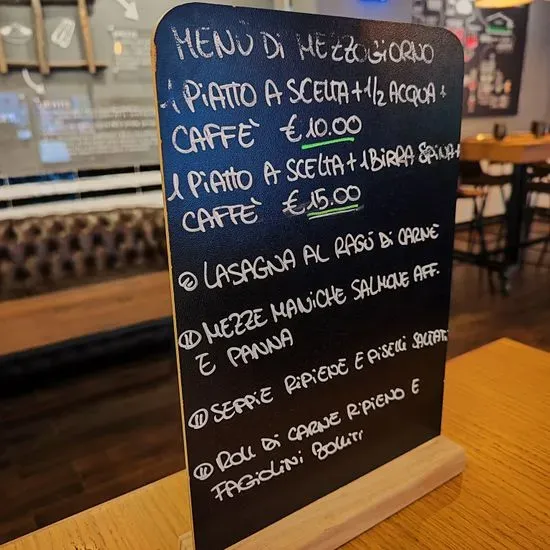 MENÙ DI MEZZOGIORNO
1 PIATTO A SCELTA + 1/2 ACQUA +
CAFFÈ € 10.00
1 PIATTO A SCELTA + 1 BIRRA SPINA +
CAFFÈ € 15.00
LASAGNA AL RAGÙ DI CARNE
MEZZE MANICHE SALMONE AFF.
E PANNA
SEPPIE RIPIENE E PISELLI SALTATI
ROLL DI CARNE RIPIENO E
FAGIOLINI BOLLITI